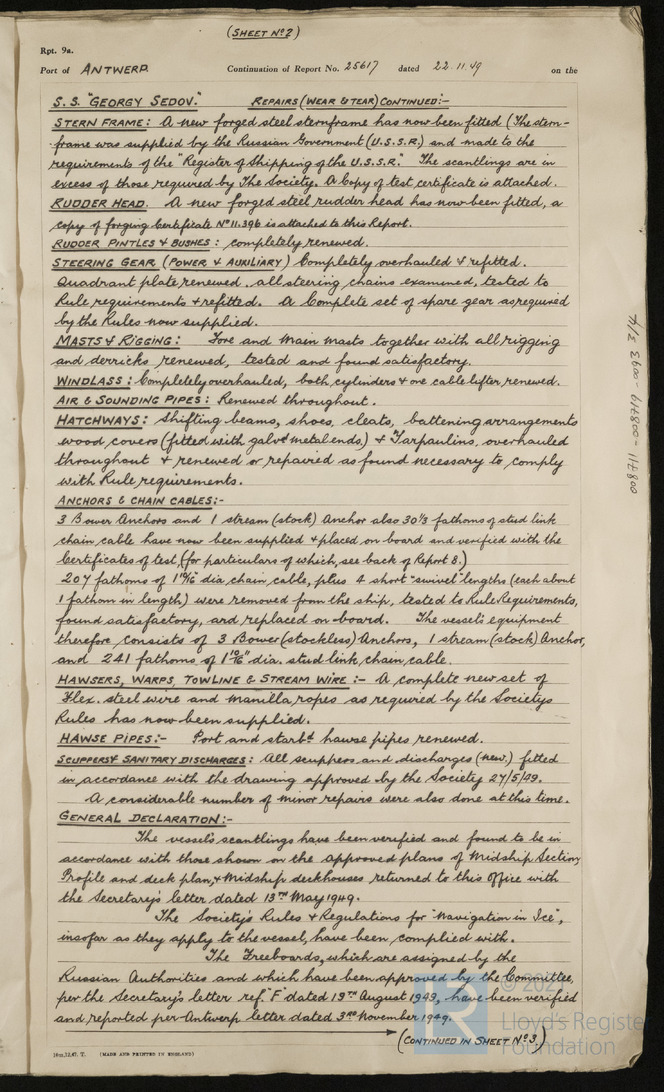 (SHEET Nº2)
Rpt. 9a.
Port of ANTWERP. Continuation of Report No. 25617 dated 22.11.49 on the
S.S. "GEORGY SEDOV." REPAIRS (WEAR & TEAR) CONTINUED:-
STERN FRAME: A new forged steel sternframe has now been fitted (The stern-
frame was supplied by the Russian Government (U.S.S.R.) and made to the
requirements of the "Register of Shipping of the U.S.S.R." The scantlings are in
excess of those required by The Society. A Copy of test certificate is attached.
RUDDER HEAD. A new forged steel rudder head has now been fitted, a
copy of forging Certificate Nº11.396 is attached to this Report.
RUDDER PINTLES & BUSHES: completely renewed.
STEERING GEAR (POWER & AUXILIARY) Completely overhauled & refitted.
Quadrant plate renewed. all steering chains examined, tested to
Rule requirements & refitted. A Complete set of spare gear as required
by the Rules now supplied.
MASTS & RIGGING: Fore and Main masts together with all rigging
and derricks renewed, tested and found satisfactory.
WINDLASS: Completely overhauled, both cylinders & one cable lifter renewed.
AIR & SOUNDING PIPES: Renewed throughout.
HATCHWAYS: Shifting beams, shoes, cleats, battening arrangements
wood covers (fitted with galvd metal ends.) & Tarpaulins, overhauled
throughout & renewed or repaired as found necessary to comply
with Rule requirements.
ANCHORS & CHAIN CABLES:-
3 Bower Anchors and 1 stream (stock) Anchor also 30⅓ fathoms of stud link
chain cable have now been supplied & placed on board and verified with the
Certificates of test, (for particulars of which, see back of Report 8.)
207 fathoms of dia chain cable, plus 4 short "swivel" lengths (each about
1 fathom in length) were removed from the ship, tested to Rule Requirements,
found satisfactory, and replaced on board. The vessel's equipment
therefore consists of 3 Bower (stockless) Anchors, 1 stream (stock) Anchor,
and 241 fathoms of dia. stud link chain cable.
HAWSERS, WARPS, TOWLINE & STREAM WIRE:- A complete new set of
Flex. steel wire and manilla ropes as required by the Societys
Rules has now been supplied.
HAWSE PIPES:- Port and starbd hawse pipes renewed.
SCUPPERS & SANITARY DISCHARGES: All scuppers and discharges (new.) fitted
in accordance with the drawing approved by the Society 27/5/49.
A considerable number of minor repairs were also done at this time.
GENERAL DECLARATION:-
The vessel's scantlings have been verified and found to be in
accordance with those shown on the approved plans of Midship Section,
Profile and deck plan, & Midship deckhouses returned to this Office with
the Secretary's letter dated 13TH May 1949.
The Society's Rules & Regulations for "Navigation in Ice",
insofar as they apply to the vessel, have been complied with.
The Freeboards, which are assigned by the
Russian Authorities and which have been approved by the Committee,
per the Secretary's letter ref. "F" dated 19TH August 1949, have been verified
and reported per Antwerp letter dated 3RD November 1949.
(CONTINUED IN SHEET Nº3.)
(MADE AND PRINTED IN ENGLAND)
Lloyd's Register
Foundation
008711-008719-0093 3/4